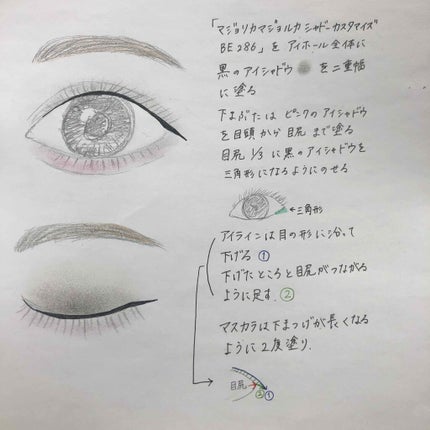 「マジョリカマジョルカ シャドーカスタマイズ
BE286」を アイホール全体に
黒のアイシャドウ を二重幅
に塗る
下まぶたは ピンクのアイシャドウ
を目頭から目尻まで塗る
目尻1/3に黒のアイシャドウを
三角形になるようにのせる
←三角形
アイラインは目の形に沿って
下げる ①
下げたところと目尻がつながる
ように足す. ②
マスカラは下まつげが長くなる
ように2度塗り.
目尻
② ①